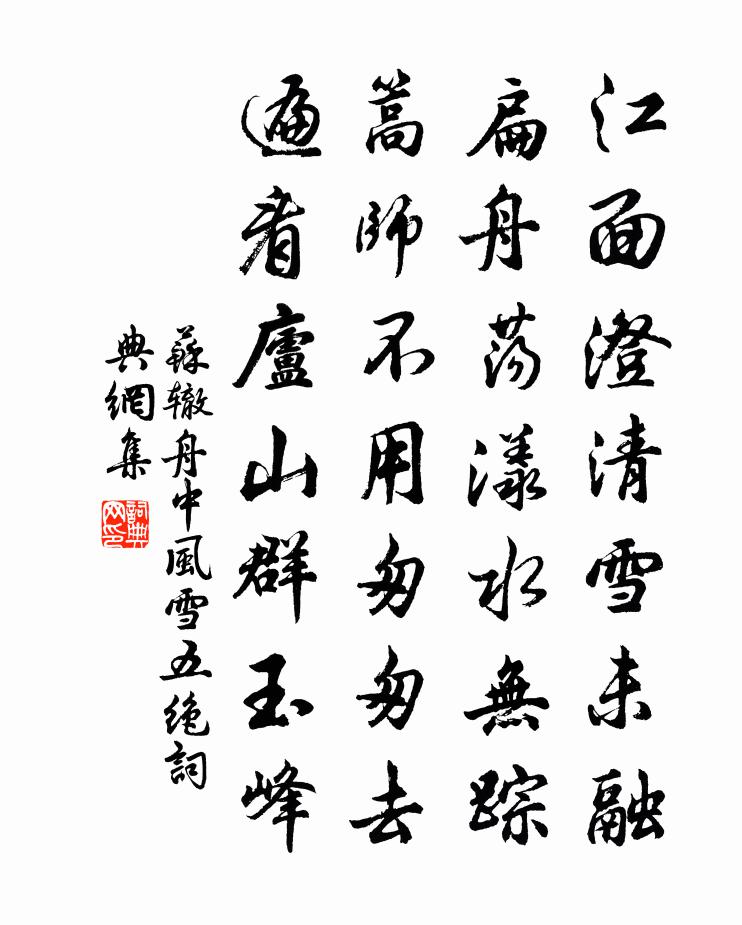 江面澄清雪未融
扁舟荡漾水無踪
篙師不用匆匆去
遍看廬山群玉峰
蘇辙舟中風雪五绝詞
典網集
詞典
网印